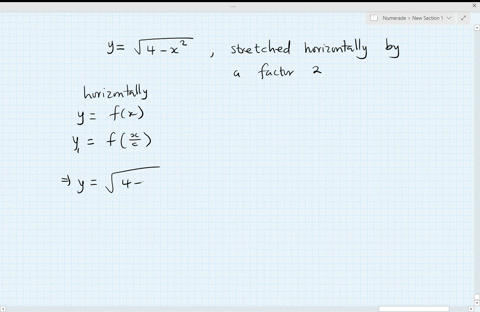 Numerade > New Section 1
y = √(4 - x²) , stretched horizontally by
a factor 2
horizontally
y = f(x)
y₁ = f(x/c)
⇒ y = √(4 -